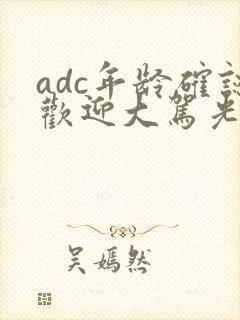 adc年龄確認
歡迎大駕光
吴嫣然